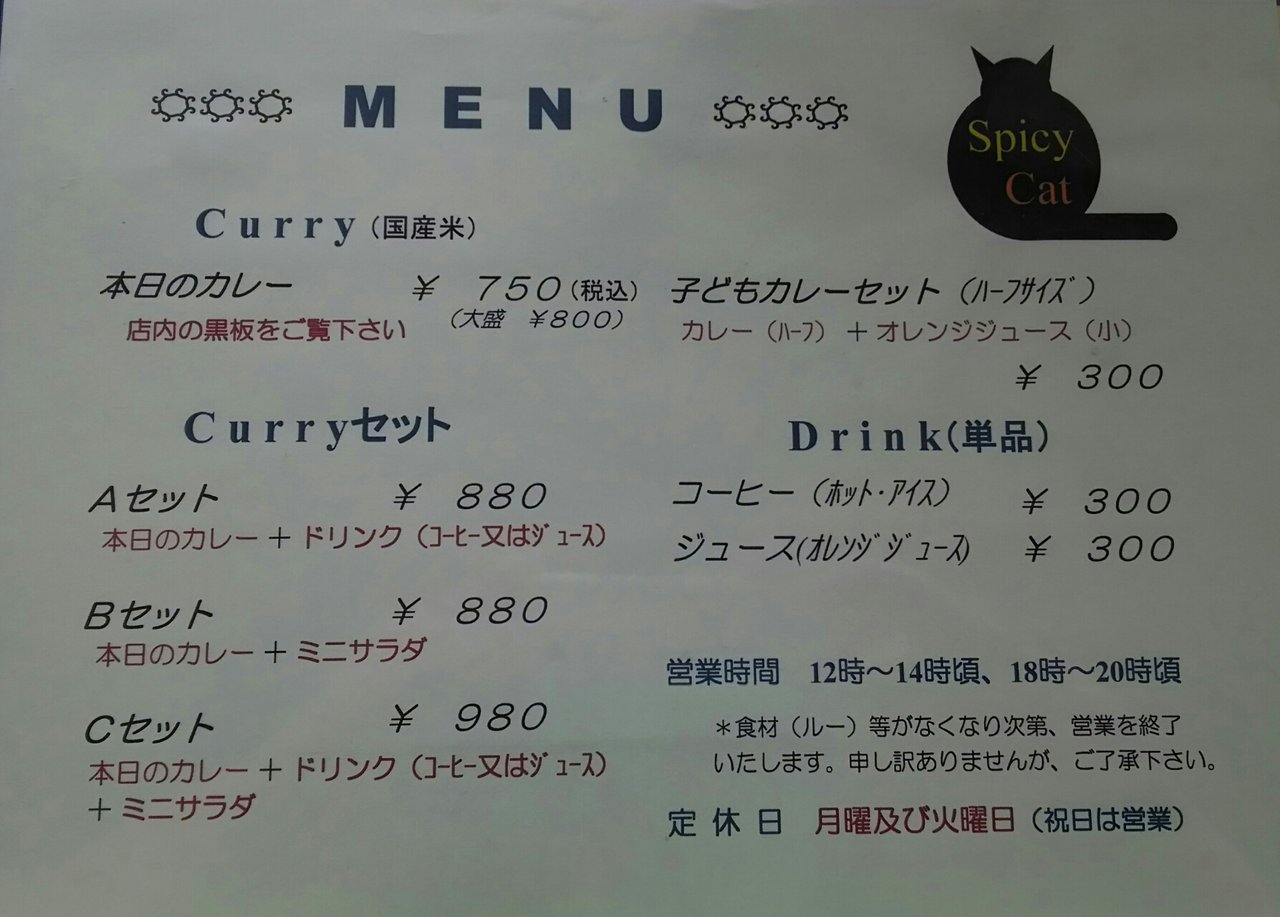 MENU
Spicy
Cat
Curry（国産米）
本日のカレー ￥ 750（税込）
店内の黒板をご覧下さい （大盛 ￥800）
子どもカレーセット（ﾊｰﾌｻｲｽﾞ）
カレー（ﾊｰﾌ）＋オレンジジュース（小）
￥ 300
Curryセット
Aセット ￥ 880
本日のカレー＋ドリンク（ｺｰﾋｰ又はｼﾞｭｰｽ）
Bセット ￥ 880
本日のカレー＋ミニサラダ
Cセット ￥ 980
本日のカレー＋ドリンク（ｺｰﾋｰ又はｼﾞｭｰｽ）
＋ミニサラダ
Drink（単品）
コーヒー（ﾎｯﾄ･ｱｲｽ） ￥ 300
ジュース(ｵﾚﾝｼﾞｼﾞｭｰｽ) ￥ 300
営業時間 12時～14時頃、18時～20時頃
＊食材（ルー）等がなくなり次第、営業を終了
いたします。申し訳ありませんが、ご了承下さい。
定休日 月曜及び火曜日（祝日は営業）